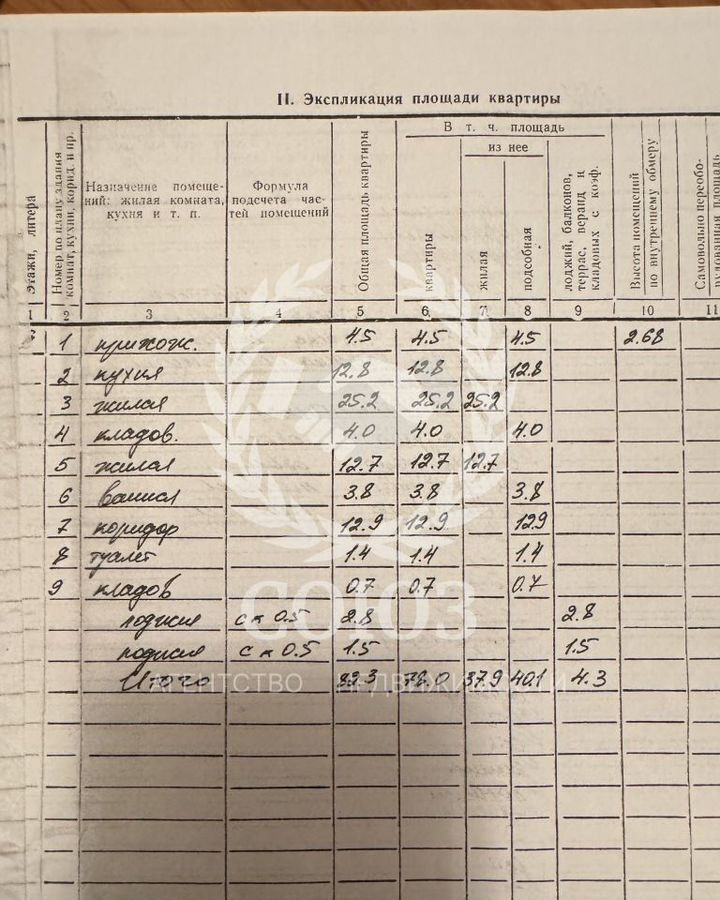 II. Экспликация площади квартиры
Этажи, литера
Номер по плану здания комнат, кухни, корид. и пр.
Назначение помеще-
ний: жилая комната,
кухня и т. п.
Формула
подсчета час-
тей помещений
Общая площадь квартиры
В т. ч. площадь
из нее
квартиры
жилая
подсобная
лоджий, балконов, террас, веранд и кладовых с коэф.
Высота помещений по внутреннему обмеру
Самовольно переобо-
рудованная площадь
1 2 3 4 5 6 7 8 9 10 11
1 прихож. 4.5 4.5 4.5 2.68
2 кухня 12.8 12.8 12.8
3 жилая 25.2 25.2 25.2
4 кладов. 4.0 4.0 4.0
5 жилая 12.7 12.7 12.7
6 ванная 3.8 3.8 3.8
7 коридор 12.9 12.9 12.9
8 туалет 1.4 1.4 1.4
9 кладов 0.7 0.7 0.7
лоджия с к 0.5 2.8 2.8
лоджия с к 0.5 1.5 1.5
Итого 82.3 78.0 37.9 40.1 4.3
СОЮЗ
АГЕНТСТВО НЕДВИЖИМОСТИ